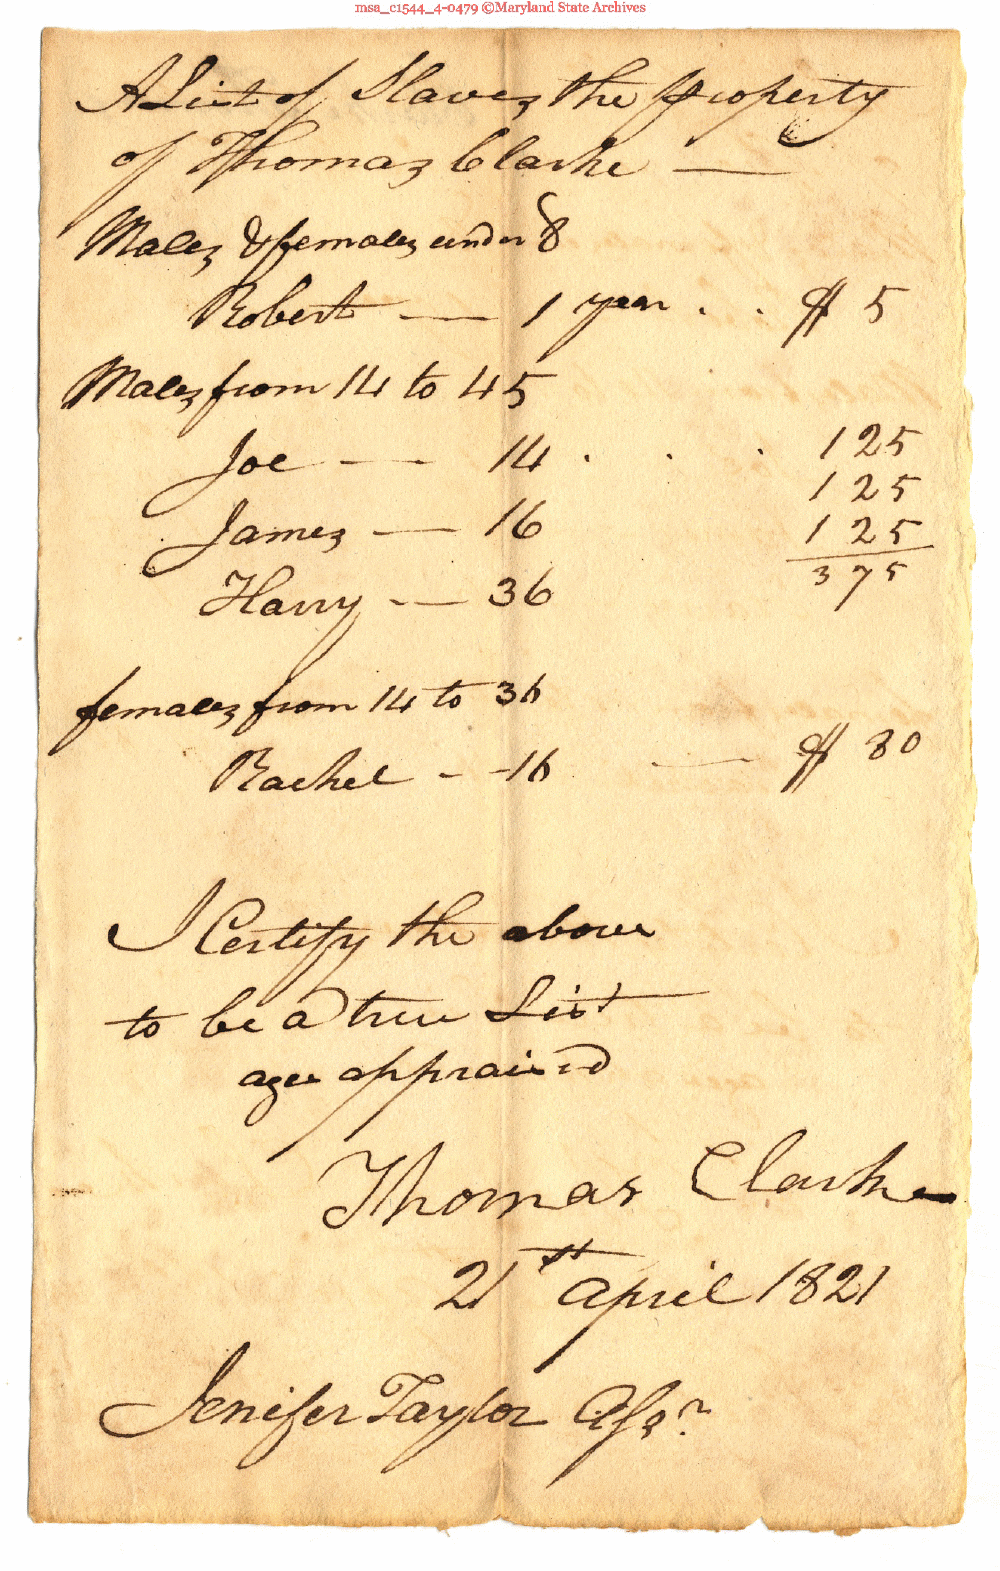 msa_c1544_4-0479 ©Maryland State Archives
A List of Slaves the property
of Thomas Clarke —
Males & females under 8
Robert — 1 year . . $ 5
Males from 14 to 45
Joe — — 14 . . . 125
125
James — 16 125
375
Harry - — 36
females from 14 to 36
Rachel - - 16 — $ 80
I Certify the above
to be a true List
ages appraised
Thomas Clarke
21st April 1821
Jenifer Taylor Assr